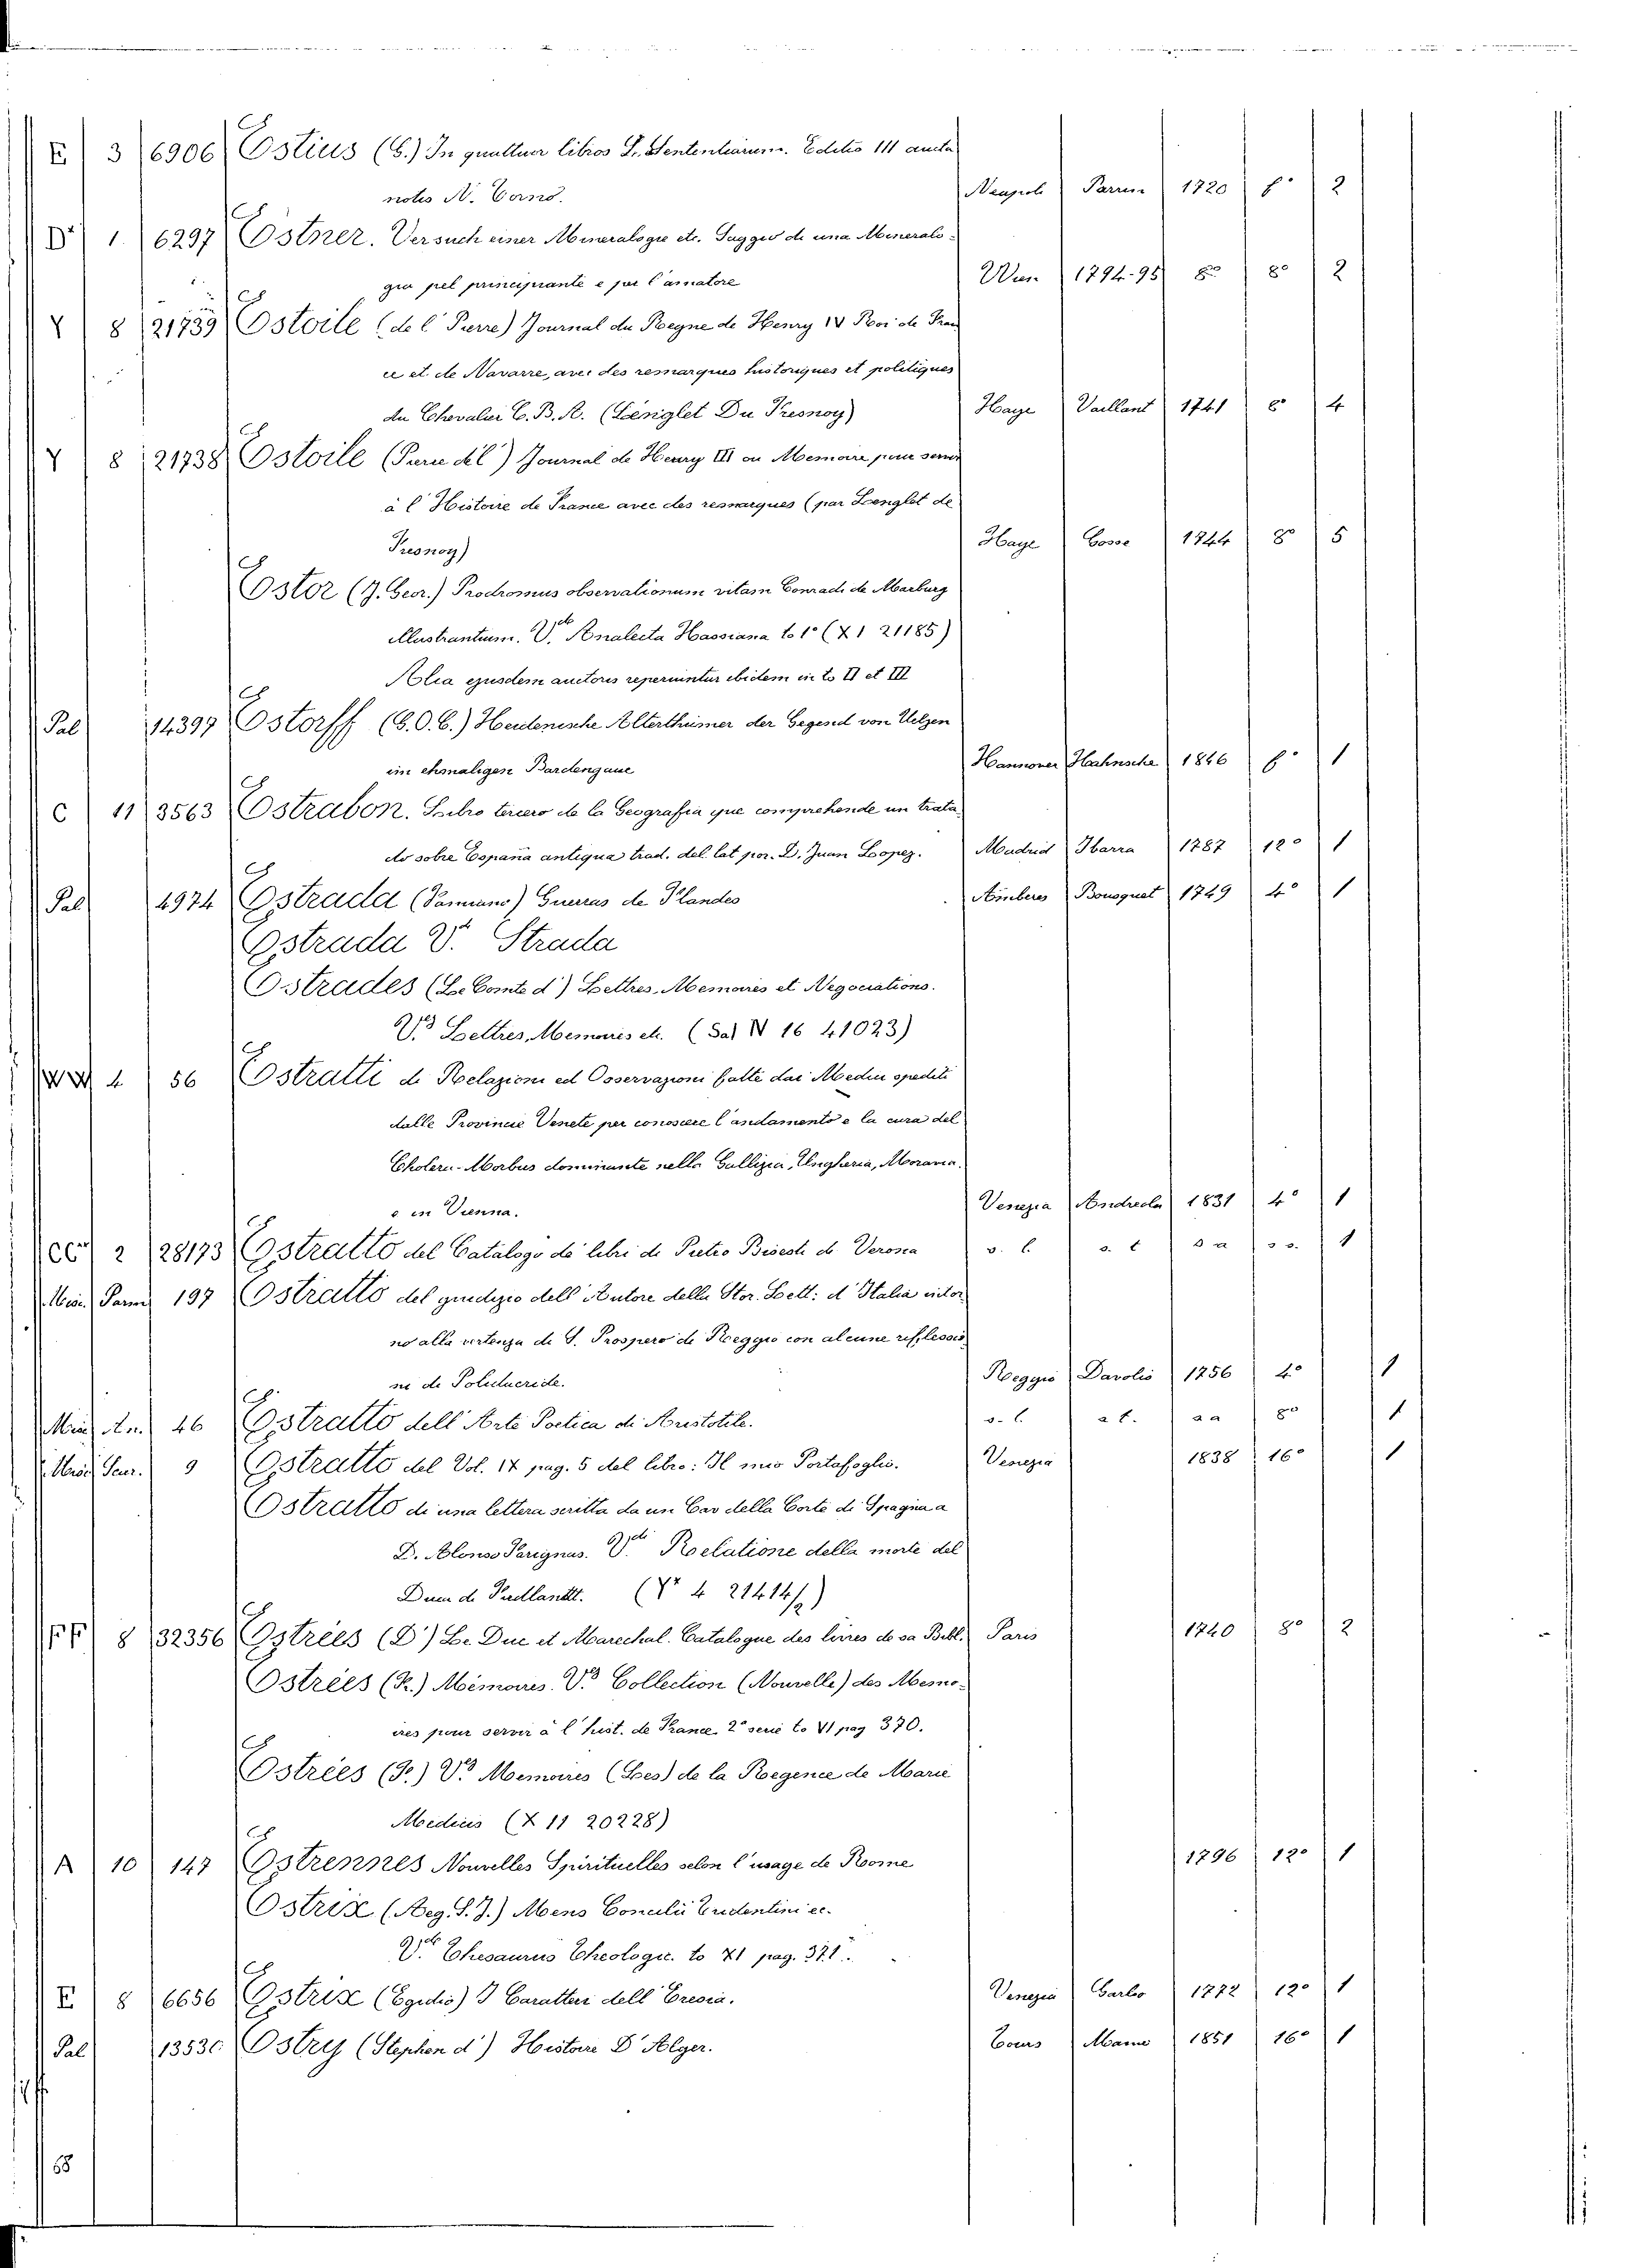 E 3 6906 Estius (G.) In quattuor libros S. Sententiarum. Editio III aucta
notis N. Corno. Neapoli Parrin 1720 f° 2
D' 1 6297 Estner. Versuch einer Mineralogie etc. Saggio di una Mineralo-
gia pel principiante e per l'amatore Wien 1794-95 8° 8° 2
Y 8 21739 Estoile (de l' Pierre) Journal du Regne de Henry IV Roi de Fran
ce et de Navarre, avec des remarques historiques et politiques
du Chevalier C. B. A. (Lenglet Du Fresnoy) Haye Vaillant 1741 8° 4
Y 8 21738 Estoile (Pierre del') Journal de Henry III ou Memoire pour servir
à l'Histoire de France avec des remarques (par Lenglet de
Fresnoy) Haye Gosse 1744 8° 5
Estor (J. Geor.) Prodromus observationum vitam Conradi de Marburg
illustrantium. V. Analecta Hassiana to 1° (X 1 21185)
Alia ejusdem auctoris reperiuntur ibidem in to II et III
Pal 14397 Estorff (G. O. C.) Heidenische Alterthümer der Gegend von Uelzen
im ehmaligen Bardengaue Hannover Hahnsche 1846 f° 1
C 11 3563 Estrabon. Libro tercero de la Geografia que comprehende un trata
do sobre España antiqua trad. del lat. por. D. Juan Lopez. Madrid Ibarra 1787 12° 1
Pal 4974 Estrada (Famiano) Guerras de Flandes Amberes Bousquet 1749 4° 1
Estrada V. Strada
Estrades (Le Comte d') Lettres, Memoires et Negociations.
V. Lettres, Memoires etc. (Sal V 16 41023)
WW 4 56 Estratti di Relazioni ed Osservazioni fatte dai Medici spediti
dalle Provincie Venete per conoscere l'andamento e la cura del
Cholera-Morbus dominante nella Gallizia, Ungheria, Moravia,
e in Vienna. Venezia Andreola 1831 4° 1
CC 2 28173 Estratto del Catalogo di libri di Pietro Bisesti di Verona s. l. s. t. s a s s. 1
Misc. Parm 197 Estratto del giudizio dell'Autore della Stor. Lett: d'Italia intor
no alla vertenza di S. Prospero di Reggio con alcune riflessio
ni di Policlueride. Reggio Davolio 1756 4° 1
Misc An. 46 Estratto dell'Arte Poetica di Aristotele. s. l. a t. a a 8° 1
Misc Scur. 9 Estratto del Vol. IX pag. 5 del libro: Il mio Portafoglio. Venezia 1838 16° 1
Estratto di una lettera scritta da un Cav della Corte di Spagna a
D. Alonso Parignas. V. Relatione della morte del
Duca di Fridlandt. (Y' 4 21414/2)
FF 8 32356 Estrées (D') Le Duc et Marechal. Catalogue des livres de sa Bibl. Paris 1740 8° 2
Estrées (F.) Mémoires. V. Collection (Nouvelle) des Memo-
ires pour servir à l'hist. de France 2° serie to VI pag 370.
Estrées (F.) V. Memoires (Les) de la Regence de Marie
Medicis (X 11 20228)
A 10 147 Estrennes Nouvelles Spirituelles selon l'usage de Rome 1796 12° 1
Estrix (Aeg. S. J.) Mens Concilii Tridentini ec.
V. Thesaurus Theologic. to XI pag. 371.
E 8 6656 Estrix (Egidio) I Caratteri dell'Eresia. Venezia Carlo 1772 12° 1
Pal 13530 Estry (Stephen d') Histoire D'Alger. Tours Mame 1851 16° 1
68